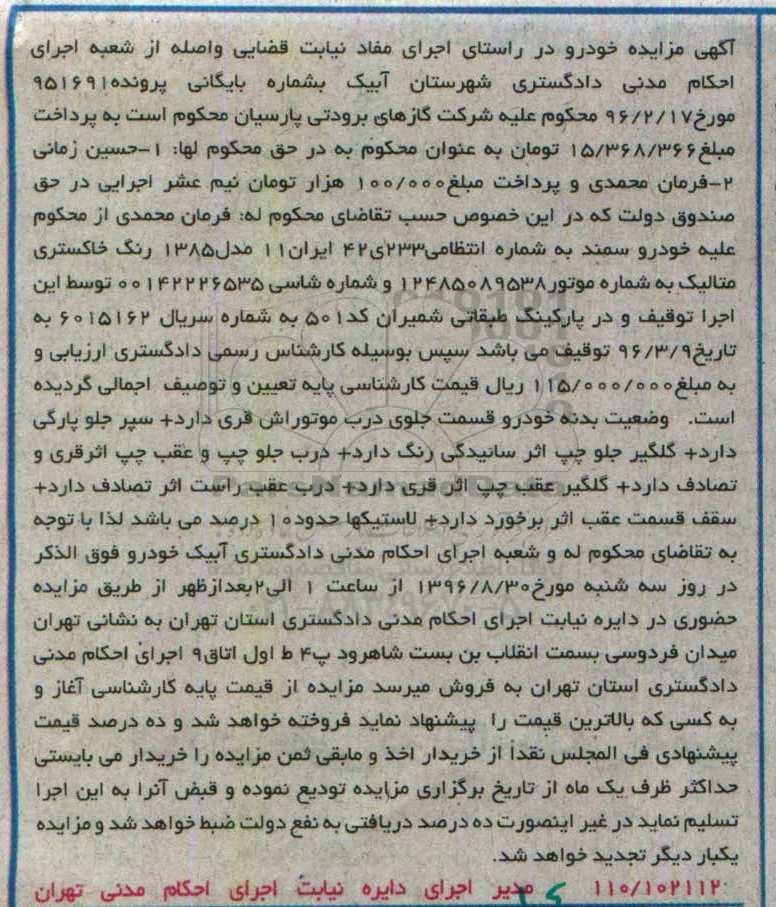 آگهی مزایده خودرو در راستای اجرای مفاد نیابت قضایی واصله از شعبه اجرای
احکام مدنی دادگستری شهرستان آبیک بشماره بایگانی پرونده۹۵۱۶۹۱
مورخ۹۶/۲/۱۷ محکوم علیه شرکت گازهای برودتی پارسیان محکوم است به پرداخت
مبلغ۱۵/۳۶۸/۳۶۶ تومان به عنوان محکوم به در حق محکوم لها: ۱-حسین زمانی
۲-فرمان محمدی و پرداخت مبلغ۱۰۰/۰۰۰ هزار تومان نیم عشر اجرایی در حق
صندوق دولت که در این خصوص حسب تقاضای محکوم له: فرمان محمدی از محکوم
علیه خودرو سمند به شماره انتظامی۲۳۳ی۴۲ ایران۱۱ مدل۱۳۸۵ رنگ خاکستری
متالیک به شماره موتور۱۲۴۸۵۰۸۹۵۳۸ و شماره شاسی ۰۰۱۴۲۲۲۶۵۳۵ توسط این
اجرا توقیف و در پارکینگ طبقاتی شمیران کد۵۰۱ به شماره سریال ۶۰۱۵۱۶۲ به
تاریخ۹۶/۳/۹ توقیف می باشد سپس بوسیله کارشناس رسمی دادگستری ارزیابی و
به مبلغ۱۱۵/۰۰۰/۰۰۰ ریال قیمت کارشناسی پایه تعیین و توصیف اجمالی گردیده
است. وضعیت بدنه خودرو قسمت جلوی درب موتوراش قری دارد+ سپر جلو پارگی
دارد+ گلگیر جلو چپ اثر سائیدگی رنگ دارد+ درب جلو چپ و عقب چپ اثرقری و
تصادف دارد+ گلگیر عقب چپ اثر قری دارد+ درب عقب راست اثر تصادف دارد+
سقف قسمت عقب اثر برخورد دارد+ لاستیکها حدود۱۰ درصد می باشد لذا با توجه
به تقاضای محکوم له و شعبه اجرای احکام مدنی دادگستری آبیک خودرو فوق الذکر
در روز سه شنبه مورخ۱۳۹۶/۸/۳۰ از ساعت ۱ الی۲بعدازظهر از طریق مزایده
حضوری در دایره نیابت اجرای احکام مدنی دادگستری استان تهران به نشانی تهران
میدان فردوسی بسمت انقلاب بن بست شاهرود پ۴ ط اول اتاق۹ اجرای احکام مدنی
دادگستری استان تهران به فروش میرسد مزایده از قیمت پایه کارشناسی آغاز و
به کسی که بالاترین قیمت را پیشنهاد نماید فروخته خواهد شد و ده درصد قیمت
پیشنهادی فی المجلس نقداً از خریدار اخذ و مابقی ثمن مزایده را خریدار می بایستی
حداکثر ظرف یک ماه از تاریخ برگزاری مزایده تودیع نموده و قبض آنرا به این اجرا
تسلیم نماید در غیر اینصورت ده درصد دریافتی به نفع دولت ضبط خواهد شد و مزایده
یکبار دیگر تجدید خواهد شد.
۱۱۰/۱۰۲۱۱۲ مدیر اجرای دایره نیابت اجرای احکام مدنی تهران